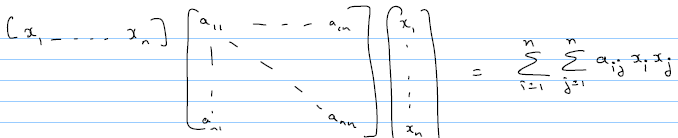 [x₁ - - - - xₙ] [a₁₁ - - - a₁ₙ ; aₙ₁ aₙₙ] [x₁ ⋮ xₙ] = ∑ᵢ₌₁ⁿ ∑ⱼ₌₁ⁿ aᵢⱼ xᵢ xⱼ